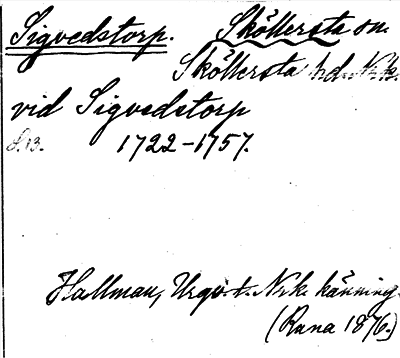 Sigvedstorp. Sköllersta sn.
Sköllersta hd. Nrk.
vid Sigvedstorp
s. 13. 1722-1757.
Hallman, t. Nrk. känning
(Runa 1876.)